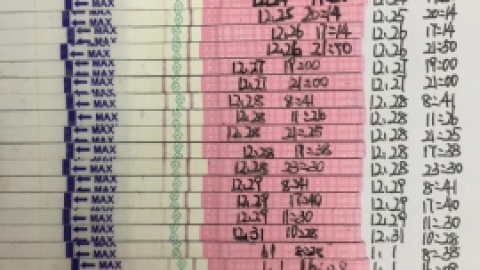 MAX
MAX 12.25 20=14 12.25 20=14
MAX 12.26 17=14 12.26 17=14
MAX 12.26 21=50 12.26 21=50
MAX 12.27 19=00 12.27 19=00
MAX 12.27 21=00 12.27 21=00
MAX 12.28 8=41 12.28 8=41
MAX 12.28 11=26 12.28 11=26
MAX 12.28 21=25 12.28 21=25
MAX 12.28 17=38 12.28 17=38
MAX 12.28 23=30 12.28 23=30
MAX 12.29 8=41 12.29 8=41
MAX 12.29 17=40 12.29 17=40
MAX 12.29 11=30 12.29 11=30
MAX 12.31 10=28 12.31 10=28
MAX 1.1 1.1 8=35
MAX 1.1